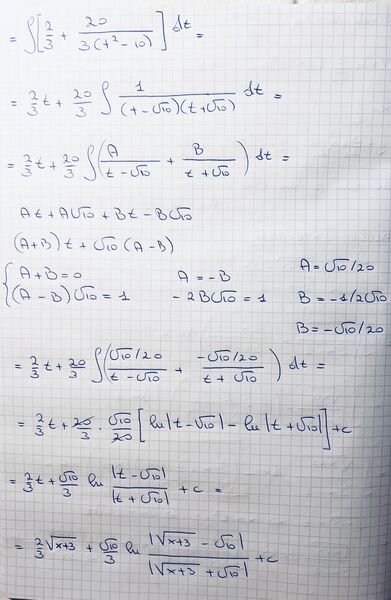 = ∫[2/3 + 20/3(t²-10)] dt =
= 2/3 t + 20/3 ∫ 1/(t-√10)(t+√10) dt =
= 2/3 t + 20/3 ∫(A/t-√10 + B/t+√10) dt =
At + A√10 + Bt - B√10
(A+B)t + √10 (A-B)
{A+B=0 A=-B A=√10/20
(A-B)√10=1 -2B√10=1 B=-1/2√10
B=-√10/20
= 2/3 t + 20/3 ∫(√10/20/t-√10 + -√10/20/t+√10) dt =
= 2/3 t + 20/3 · √10/20 [ln|t-√10| - ln|t+√10|] + c
= 2/3 t + √10/3 ln |t-√10|/|t+√10| + c =
= 2/3 √x+3 + √10/3 ln |√x+3 - √10|/|√x+3 + √10| + c